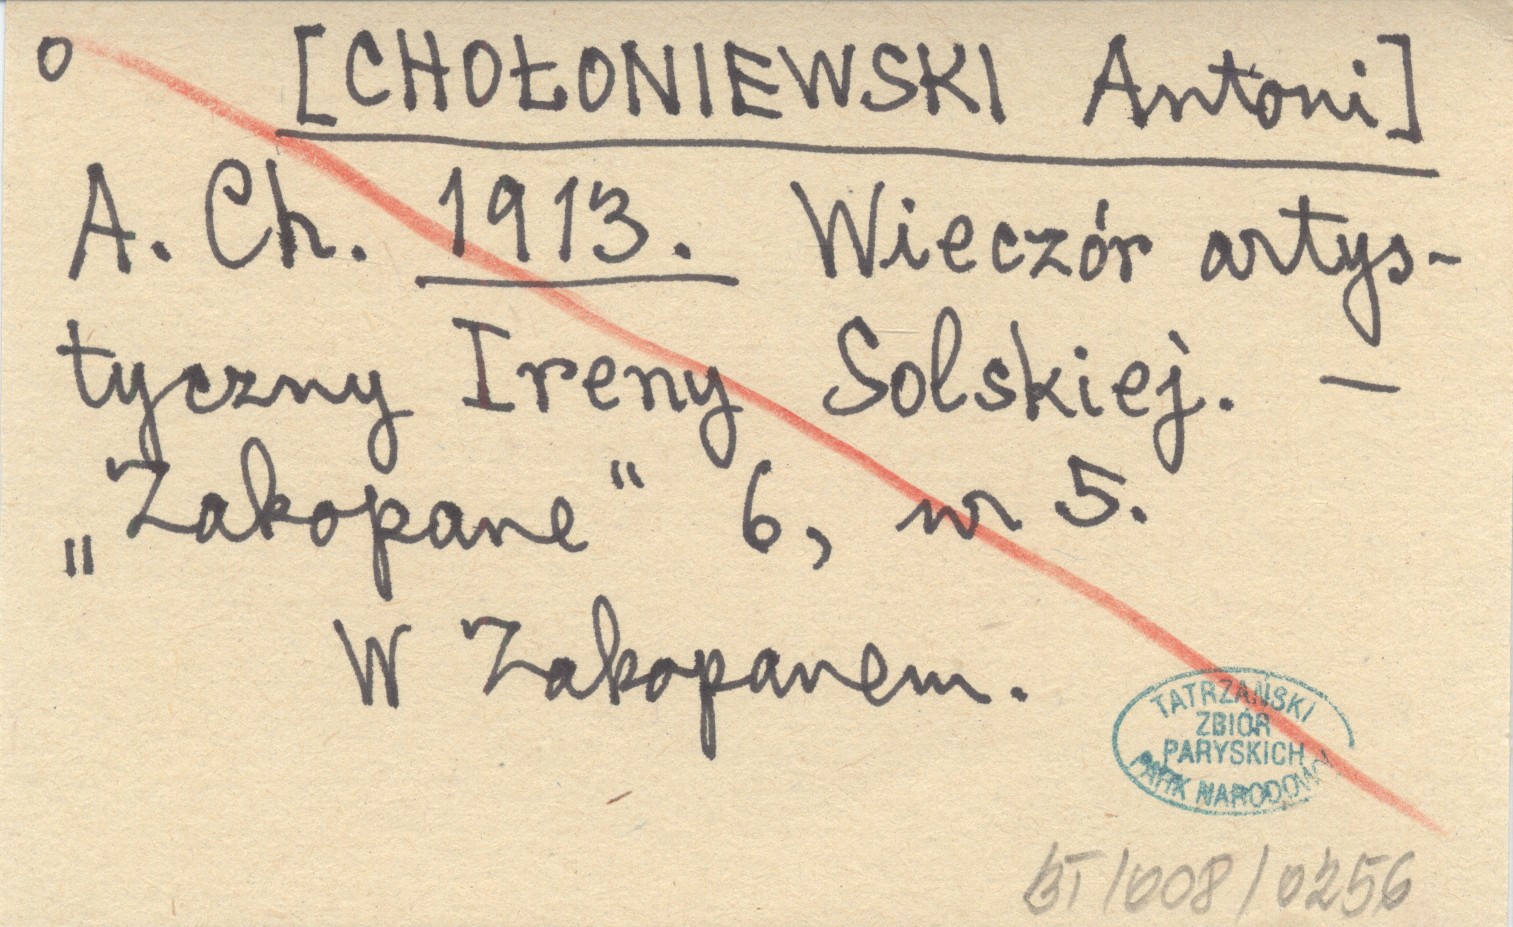 o [CHOŁONIEWSKI Antoni]
A. Ch. 1913. Wieczór artys-
tyczny Ireny Solskiej. —
„Zakopane“ 6, nr 5.
W Zakopanem.
TATRZAŃSKI
ZBIÓR
PARYSKICH
PARK NARODOWY
BT/008/0256